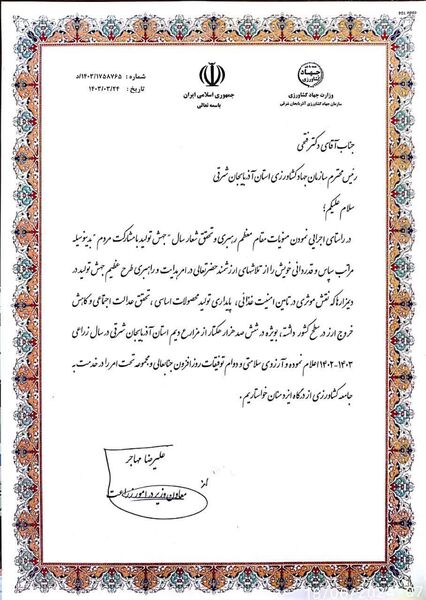 جمهوری اسلامی ایران
باسمه تعالی
جهاد
کشاورزی
وزارت جهاد کشاورزی
سازمان جهاد کشاورزی آذربایجان شرقی
شماره : ۱۴۰۳/۱۷۵۸۷۶۵/د
تاریخ : ۱۴۰۳/۰۳/۲۴
جناب آقای دکتر فتحی
رئیس محترم سازمان جهاد کشاورزی استان آذربایجان شرقی
سلام علیکم؛
در راستای اجرایی نمودن منویات مقام معظم رهبری و تحقق شعار سال "جهش تولید با مشارکت مردم" بدینوسیله
مراتب سپاس و قدردانی خویش را از تلاشهای ارزشمند حضرتعالی در امر هدایت و راهبری طرح عظیم جهش تولید در
دیمزارها که نقش موثری در تامین امنیت غذائی، پایداری تولید محصولات اساسی، تحقق عدالت اجتماعی و کاهش
خروج ارز در سطح کشور داشته، بویژه در شش صد هزار هکتار از مزارع دیم استان آذربایجان شرقی در سال زراعی
۱۴۰۳-۱۴۰۲ اعلام نموده و آرزوی سلامتی و دوام توفیقات روزافزون جنابعالی و مجموعه تحت امر را در خدمت به
جامعه کشاورزی از درگاه ایزد منان خواستاریم.
علیرضا مهاجر
معاون وزیر در امور زراعت